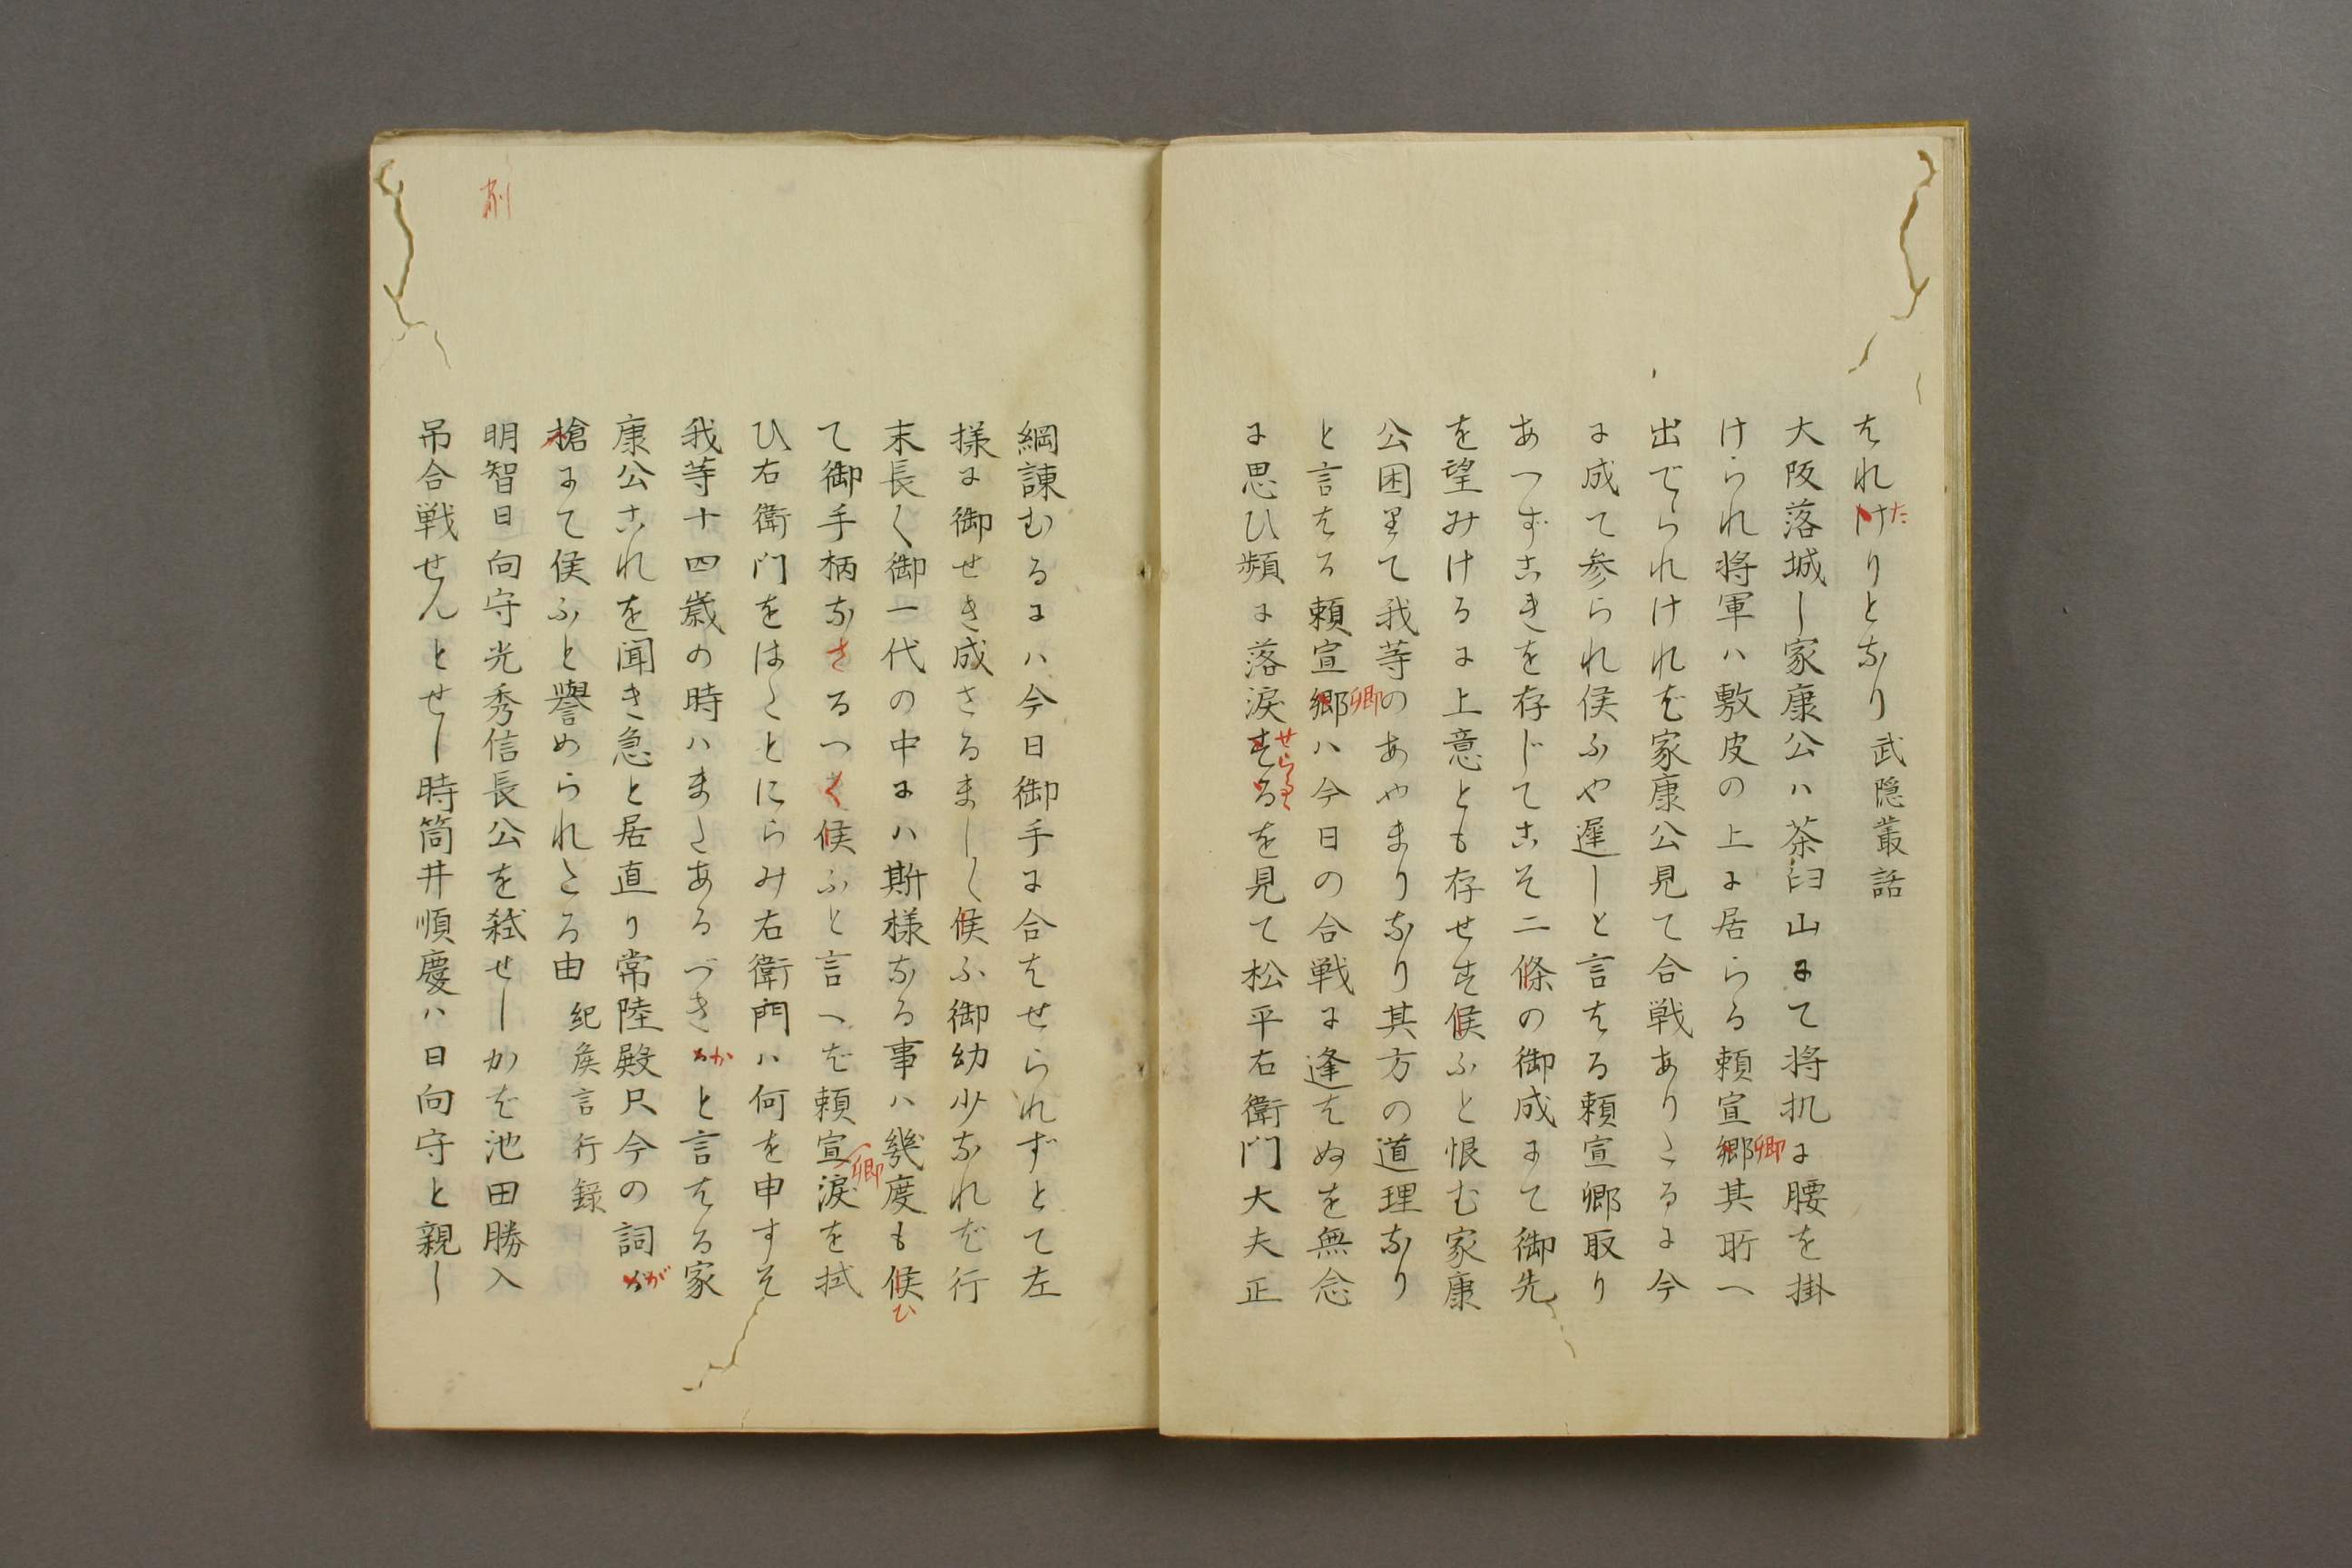 それけりとなり 武隠叢話
た
大阪落城し家康公ハ茶臼山にて将机に腰を掛
けられ将軍ハ敷皮の上に居らる頼宣郷其所へ
卿
出でられけれバ家康公見て合戦ありたるに今
に成て参られ侯ふや遅しと言はる頼宣郷取り
あへずこきを存じてこそ二條の御成にて御先
を望みけるに上意とも存せず候ふと恨む家康
公困りて我等のあやまりなり其方の道理なり
と言はる頼宣郷ハ今日の合戦に逢はぬを無念
卿
に思ひ頻に落涙するを見て松平右衛門大夫正
せらるゝ
綱諌むるにハ今日御手に合はせられずとて左
様に御せき成さるまじく候ふ御幼少なれば行
末長く御一代の中にハ斯様なる事ハ幾度も候
ひ
て御手柄なさるつく候ふと言へば頼宣涙を拭
卿
ひ右衛門をはたとにらみ右衛門ハ何を申すそ
我等十四歳の時ハまたあるづきかと言はる家
か
康公これを聞き急と居直り常陸殿只今の詞が
が
槍にて侯ふと譽められたる由 紀矦言行録
削
明智日向守光秀信長公を弑せしかば池田勝入
吊合戦せんとせし時筒井順慶ハ日向守と親し